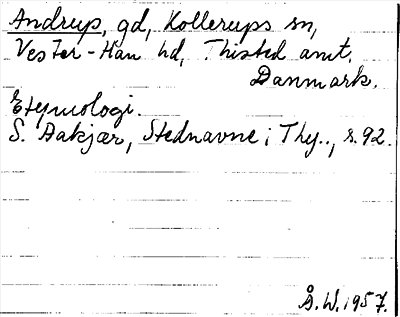 Andrup, gd, Kollerups sn,
Vester-Han hd, Thisted amt.
Danmark.
Etymologi.
S. Aakjær, Stednavne i Thy.., s. 92.
Å.W. 1957.